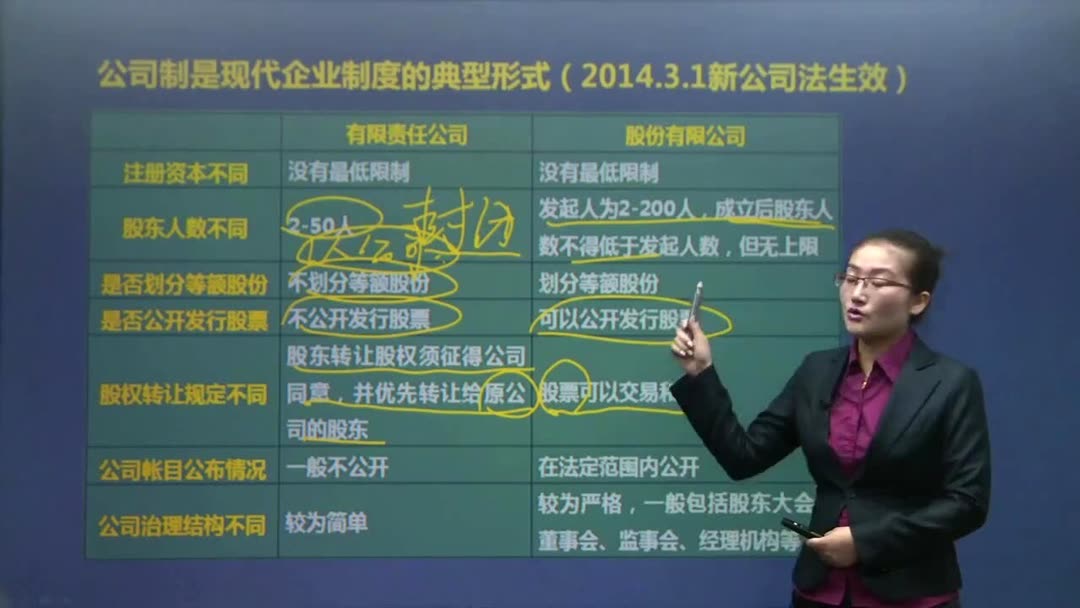 公司制是现代企业制度的典型形式（2014.3.1新公司法生效）
有限责任公司 股份有限公司
注册资本不同 没有最低限制 没有最低限制
股东人数不同 2-50人 发起人为2-200人，成立后股东人
数不得低于发起人数，但无上限
封闭
是否划分等额股份 不划分等额股份 划分等额股份
是否公开发行股票 不公开发行股票 可以公开发行股票
股权转让规定不同 股东转让股权须征得公司
同意，并优先转让给原公
司的股东
股票可以交易和
公司帐目公布情况 一般不公开 在法定范围内公开
公司治理结构不同 较为简单 较为严格，一般包括股东大会
董事会、监事会、经理机构等